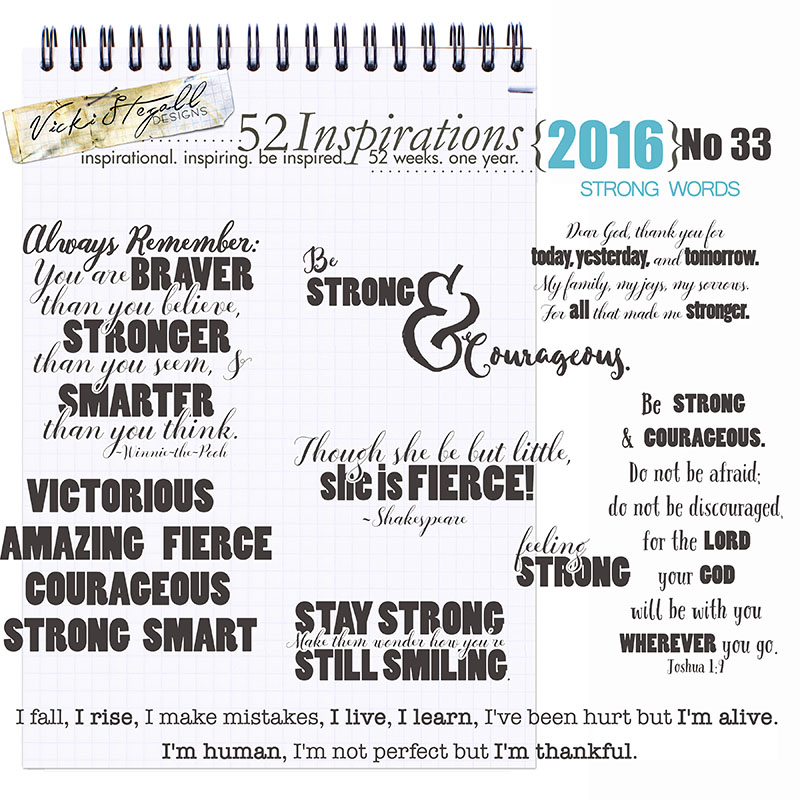 Vicki Stegall
DESIGNS
52 Inspirations {2016} No 33
inspirational. inspiring. be inspired. 52 weeks. one year.
STRONG WORDS
Always Remember:
You are BRAVER
than you believe,
STRONGER
than you seem, &
SMARTER
than you think.
~Winnie-the-Pooh
VICTORIOUS
AMAZING FIERCE
COURAGEOUS
STRONG SMART
Be
STRONG &
Courageous.
Though she be but little,
she is FIERCE!
~Shakespeare
feeling
STRONG
STAY STRONG
Make them wonder how you're
STILL SMILING.
Dear God, thank you for
today, yesterday, and tomorrow.
My family, my joys, my sorrows.
For all that made me stronger.
Be STRONG
& COURAGEOUS.
Do not be afraid;
do not be discouraged,
for the LORD
your GOD
will be with you
WHEREVER you go.
Joshua 1:9
I fall, I rise, I make mistakes, I live, I learn, I've been hurt but I'm alive.
I'm human, I'm not perfect but I'm thankful.